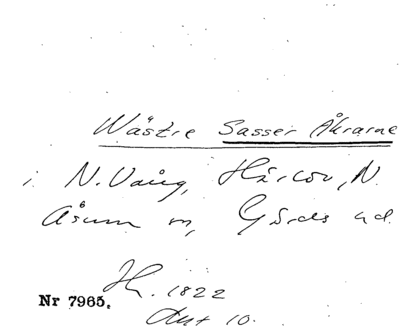 Wästre Sasser Åkrarne
i N. Vång, Härlöv, N.
Åsum sn, Gärds hd.
1822
Akt 10.
Nr 7965.